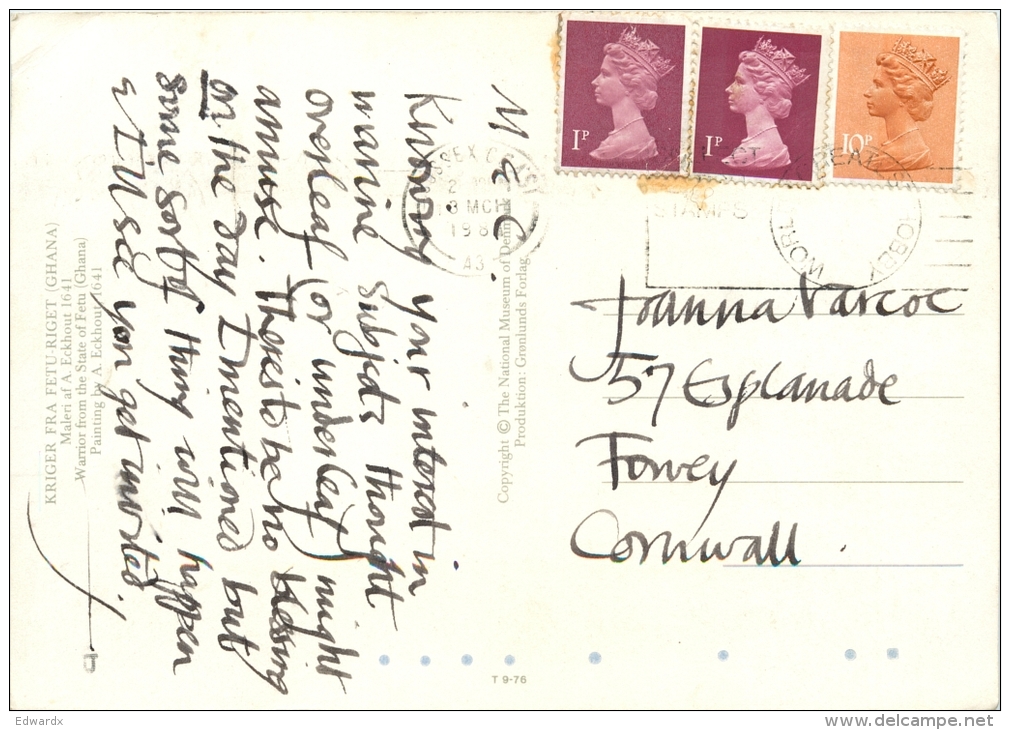 M & C.
Knowing your interest in
marine subjects thought
overleaf (or underleaf) might
amuse. There is to be no blessing
on the day I mentioned but
some sort of thing will happen
& I'll see you get invited.
KRIGER FRA FETU-RIGET (GHANA)
Maleri af A. Eckhout 1641
Warrior from the State of Fetu (Ghana)
Painting by A. Eckhout 1641
Copyright © The National Museum of Denmark
Produktion: Grønlunds Forlag
1P
1P
10P
8 MCH
198
A3
STAMPS
Joanna Varcoe
57 Esplanade
Fowey
Cornwall.
T 9-76
Edwardx
www.delcampe.net